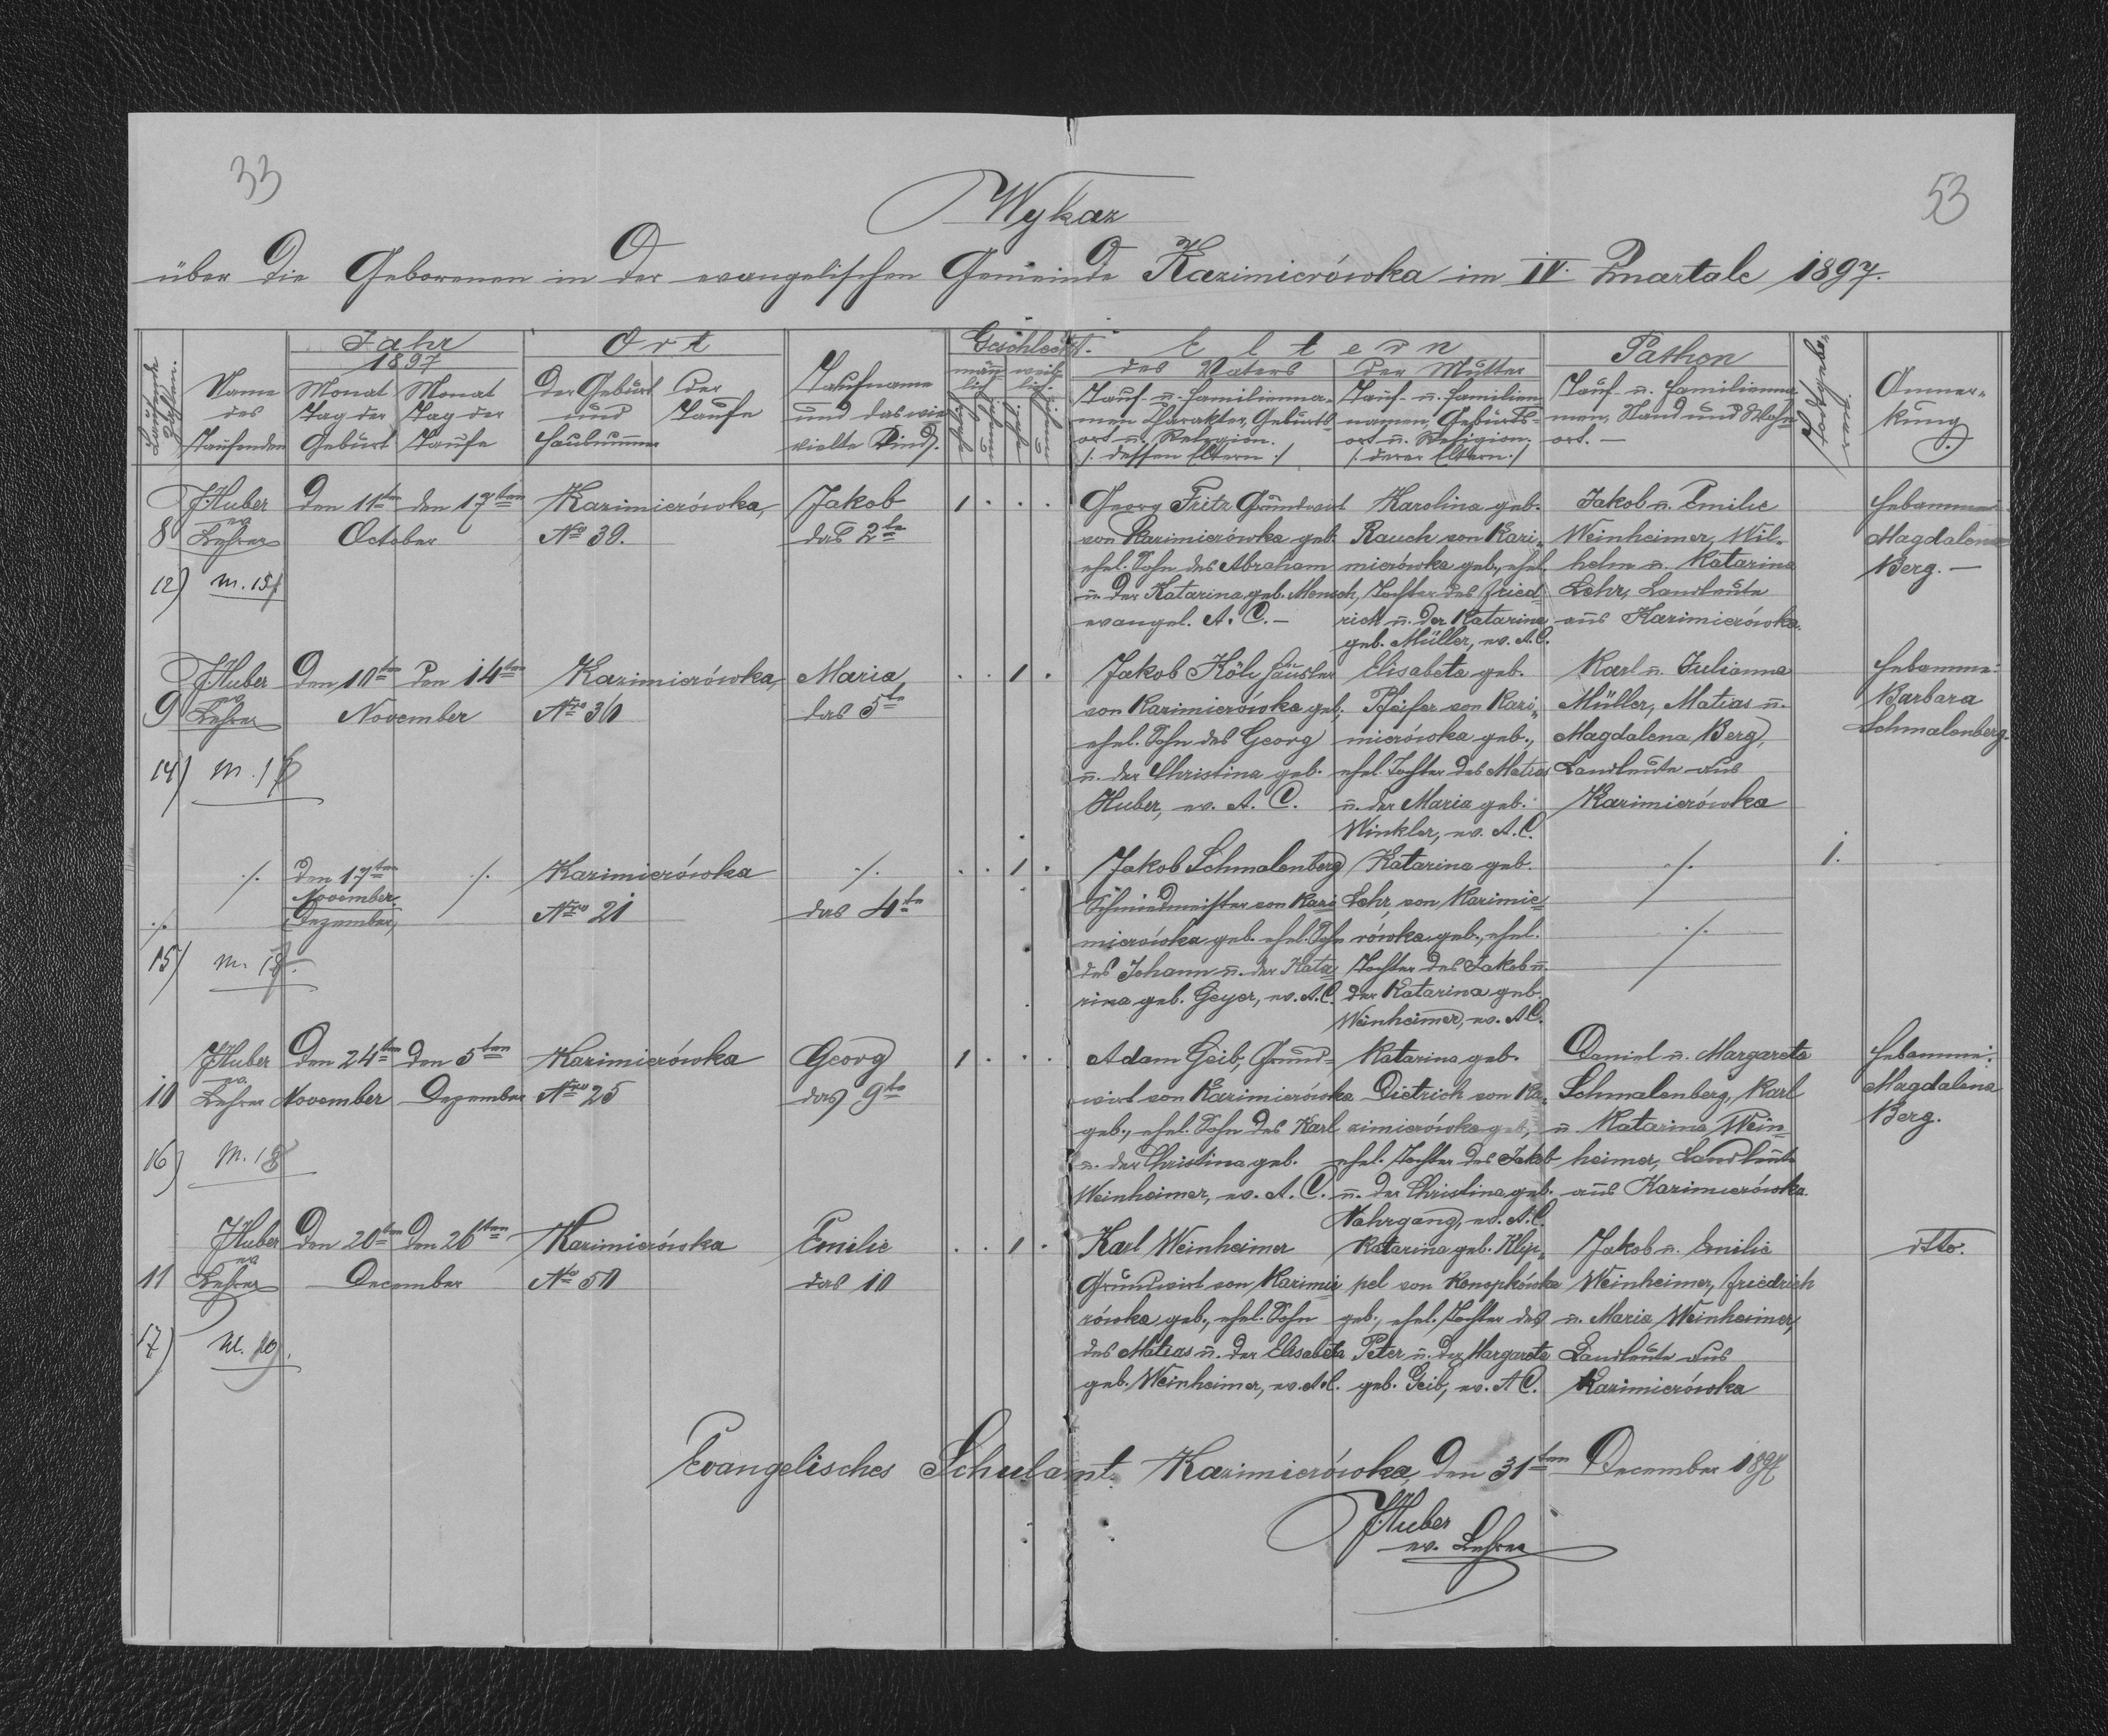 33
53
Wykaz
über die Geborenen in der evangelischen Gemeinde Kazimierówka im IV. Quartale 1897.
Laufende Zahlen.
Name
des
Taufenden
Jahr
1897
Monat
Tag der
Geburt
Monat
Tag der
Taufe
Ort
der Geburt
und
Hausnummer
der
Taufe
Taufname
und das wie
vielte Kind.
Geschlecht.
män-
lich
weib-
lich.
Eltern
des Vaters
Tauf- u. Familienna-
men Charakter, Geburts-
ort u. Religion.
/: dessen Eltern :/
der Mutter
Tauf- u. Familien
namen, Geburts-
ort u. Religion.
/: derer Eltern :/
Pathen
Tauf- u. Familienna-
men, Stand und Wohn-
ort. —
Todtgeborene
Anmer-
kung
8
12)
J. Huber
ev.
Lehrer
m. 15/
den 11ten den 17ten
October
Kazimierówka,
No 39.
Jakob
das 2te
1 . . .
Georg Fritz Grundwirt
von Kazimierówka geb.
ehel. Sohn des Abraham
u. der Katarina geb. Mensch,
evangel. A. C. —
Karolina geb.
Rauch von Kazi-
mierówka geb., ehel.
Tochter des Fried-
rich u. der Katarina
geb. Müller, ev. A. C.
Jakob u. Emilie
Weinheimer, Wil-
helm u. Katarina
Lehr, Landleute
aus Kazimierówka.
Hebamme:
Magdalena
Berg. —
9
14)
J. Huber
ev.
Lehrer
den 10ten den 14ten
November
Kazimierówka,
Nro 36
Maria
das 5te
. . 1 .
Jakob Köli Häusler
von Kazimierówka geb.,
ehel. Sohn des Georg
u. der Christina geb.
Huber, ev. A. C.
Elisabeta geb.
Pfeifer von Kazi-
mierówka geb.,
ehel. Tochter des Matias
u. der Maria geb.
Winkler, ev. A. C.
Karl u. Julianna
Müller, Matias u.
Magdalena Berg,
Landleute aus
Kazimierówka
Hebamme:
Barbara
Schmalenberg.
./.
15)
./.
den 17ten
November
Dezember,
./.
Kazimierówka
Nro 21
./.
das 4te
. . 1 .
Jakob Schmalenberg
Schmiedmeister von Kazi-
mierówka geb. ehel. Sohn
des Johann u. der Kata-
rina geb. Geyer, ev. A. C.
Katarina geb.
Lehr, von Kazimie-
rówka geb., ehel.
Tochter des Jakob u.
der Katarina geb.
Weinheimer, ev. A C.
./.
./.
1.
10
16)
J. Huber
ev.
Lehrer
den 24ten den 5ten
November Dezember
Kazimierówka
Nro 25
Georg
das 9te
1 . . .
Adam Geib, Grund-
wirt von Kazimierówka
geb., ehel. Sohn des Karl
u. der Christina geb.
Weinheimer, ev. A. C.
Katarina geb.
Dietrich von Ka-
zimierówka geb,
ehel. Tochter des Jakob
u. der Christina geb.
Nahrgang, ev. A. C.
Daniel u. Margareta
Schmalenberg, Karl
u Katarina Wein-
heimer, Landleute
aus Kazimierówka.
Hebamme:
Magdalena
Berg.
11
17)
J. Huber
ev
Lehrer
den 20ten den 26ten
December
Kazimierówka
No 50
Emilie
das 10
. . 1 .
Karl Weinheimer
Grundwirt von Kazimie-
rówka geb., ehel. Sohn
des Matias u. der Elisabeta
geb. Weinheimer, ev. A. C.
Katarina geb. Klip-
pel von Konopkówka
geb., ehel. Tochter des
Peter u. der Margareta
geb. Geib, ev. A C.
Jakob u. Emilie
Weinheimer, Friedrich
u. Maria Weinheimer,
Landleute aus
Kazimierówka
dtto.
Evangelisches Schulamt. Kazimierówka, den 31ten December 1897
J. Huber
ev. Lehrer